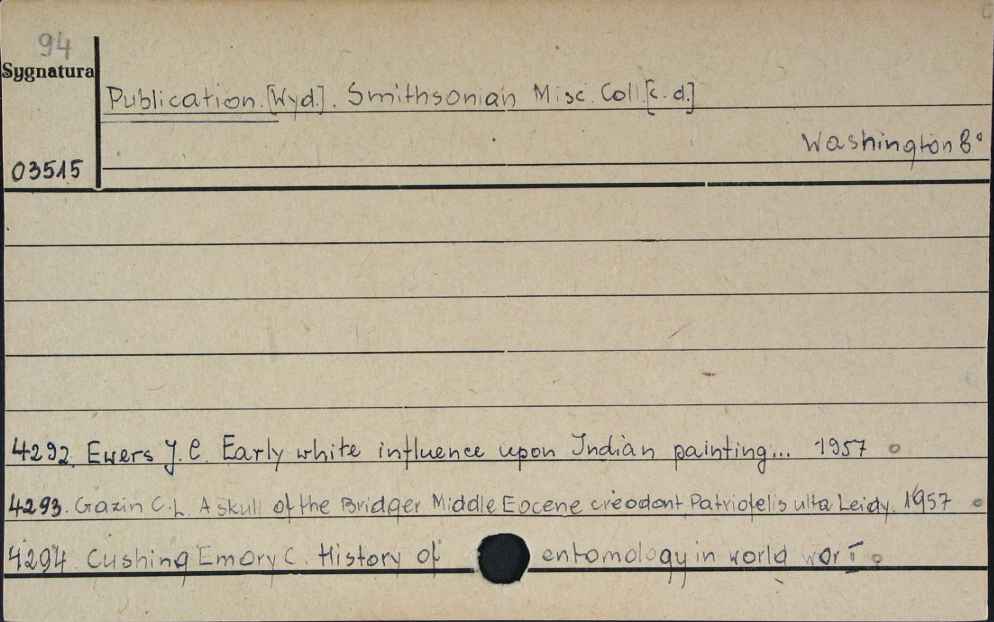 94
Sygnatura
Publication. [Wyd.]. Smithsonian Misc. Coll. [c. d.]
Washington 8°
03515
4292. Ewers J. C. Early white influence upon Indian painting... 1957
4293. Gazin C. L. A skull of the Bridger Middle Eocene creodont, Patriofelis ulta Leidy. 1957
4294. Cushing Emory C. History of entomology in world war I